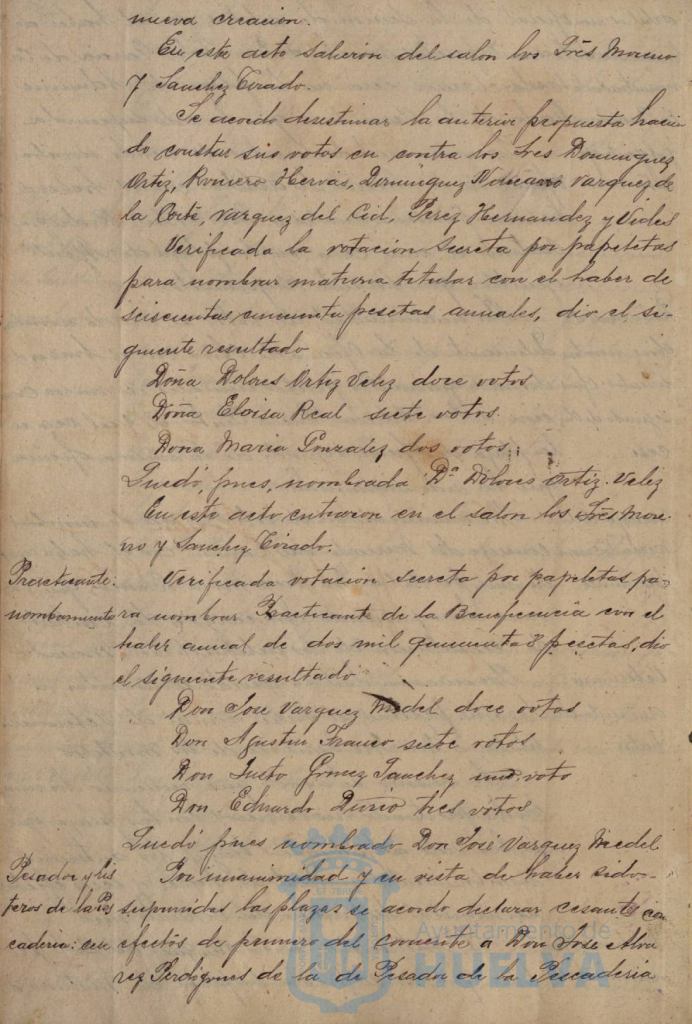 nueva creacion.
En este acto salieron del salon los Srēs Moreno
y Sanchez Tirado.
Se acordo desestimar la anterior propuesta hacien
do constar sus votos en contra los Sres Dominguez
Ortiz, Romero Hervás, Dominguez Vazquez de
la Corte, Vazquez del Cid, Perez Hernandez y Vides
Verificada la votacion secreta por papeletas
para nombrar matrona titular con el haber de
seiscientas cincuenta pesetas anuales, dio el si-
guiente resultado
Doña Dolores Ortiz Velez doce votos
Doña Eloisa Real siete votos
Dona Maria Gonzalez dos votos
Quedó, pues, nombrada Dª Dolores Ortiz Velez
En este acto entraron en el salon los Srēs More-
no y Sanchez Tirado.
Practicante:
nombramiento
Verificada votacion secreta por papeletas pa-
ra nombrar Practicante de la Beneficencia con el
haber anual de dos mil quinientas pesetas, dio
el siguiente resultado
Don Jose Vazquez Medel doce votos
Don Agustin Franco siete votos
Don Justo Gomez Sanchez un voto
Don Eduardo tres votos
Quedó pues nombrado Don José Vazquez Medel
Pesador y lis
teros de la Pes
caderia: cese
Por unanimidad y en vista de haber sido
suprimidas las plazas se acordo declarar cesantes con
efectos de primero del corriente a Don Jose Alva
rez Perdigones de la de Pesador de la Pescaderia
Ayuntamiento de
HUELVA